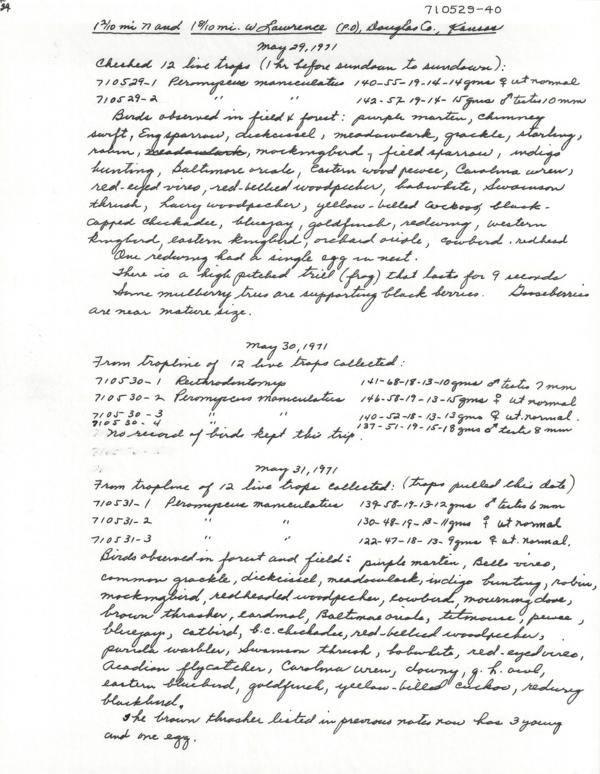 710529-40
1 2/10 mi N and 1 8/10 mi. W Lawrence (P.O), Douglas Co., Kansas
May 29, 1971
Checked 12 live traps (1 hr before sundown to sundown):
710529-1 Peromyscus maniculatus 140-55-19-14-14gms ♀ ut normal
710529-2 " " 142-52-19-14-15gms ♂ testes 10 mm
Birds observed in field & forest: purple martin, chimney
swift, Eng sparrow, dickcissel, meadowlark, grackle, starling,
robin, meadowlark, mockingbird, field sparrow, indigo
bunting, Baltimore oriole, Eastern wood pewee, Carolina wren,
red-eyed vireo, red-bellied woodpecker, bobwhite, Swainson
thrush, hairy woodpecker, yellow-billed cuckoo, black-
capped chickadee, bluejay, goldfinch, redwing, western
kingbird, eastern kingbird, orchard oriole, cowbird. redhead
One redwing had a single egg in nest.
There is a high pitched trill (frog) that lasts for 9 seconds
Some mulberry trees are supporting black berries. Gooseberries
are near mature size.
May 30, 1971
From trapline of 12 live traps collected:
710530-1 Reithrodontomys 141-68-18-13-10gms ♂ testes 7 mm
710530-2 Peromyscus maniculatus 146-58-19-13-15gms ♀ ut normal
710530-3 " " 140-52-18-13-13gms ♀ ut. normal.
710530-4 137-51-19-15-18gms ♂ testes 8 mm
No record of birds kept this trip.
May 31, 1971
From trapline of 12 live traps collected: (traps pulled this date)
710531-1 Peromyscus maniculatus 139-58-19-13-12gms ♂ testes 6 mm
710531-2 " " 130-48-19-13-11gms ♀ ut normal
710531-3 " " 122-47-18-13-9gms ♀ ut. normal.
Birds observed in forest and field: purple martin, Bells vireo,
common grackle, dickcissel, meadowlark, indigo bunting, robin,
mockingbird, redheaded woodpecker, cowbird, mourning dove,
brown thrasher, cardinal, Baltimore oriole, titmouse, pewee,
bluejay, catbird, b.c. chickadee, red-bellied woodpecker,
parula warbler, Swainson thrush, bobwhite, red-eyed vireo,
Acadian flycatcher, Carolina wren, downy, g. h. owl,
eastern bluebird, goldfinch, yellow-billed cuckoo, redwing
blackbird.
The brown thrasher listed in previous notes now has 3 young
and one egg.